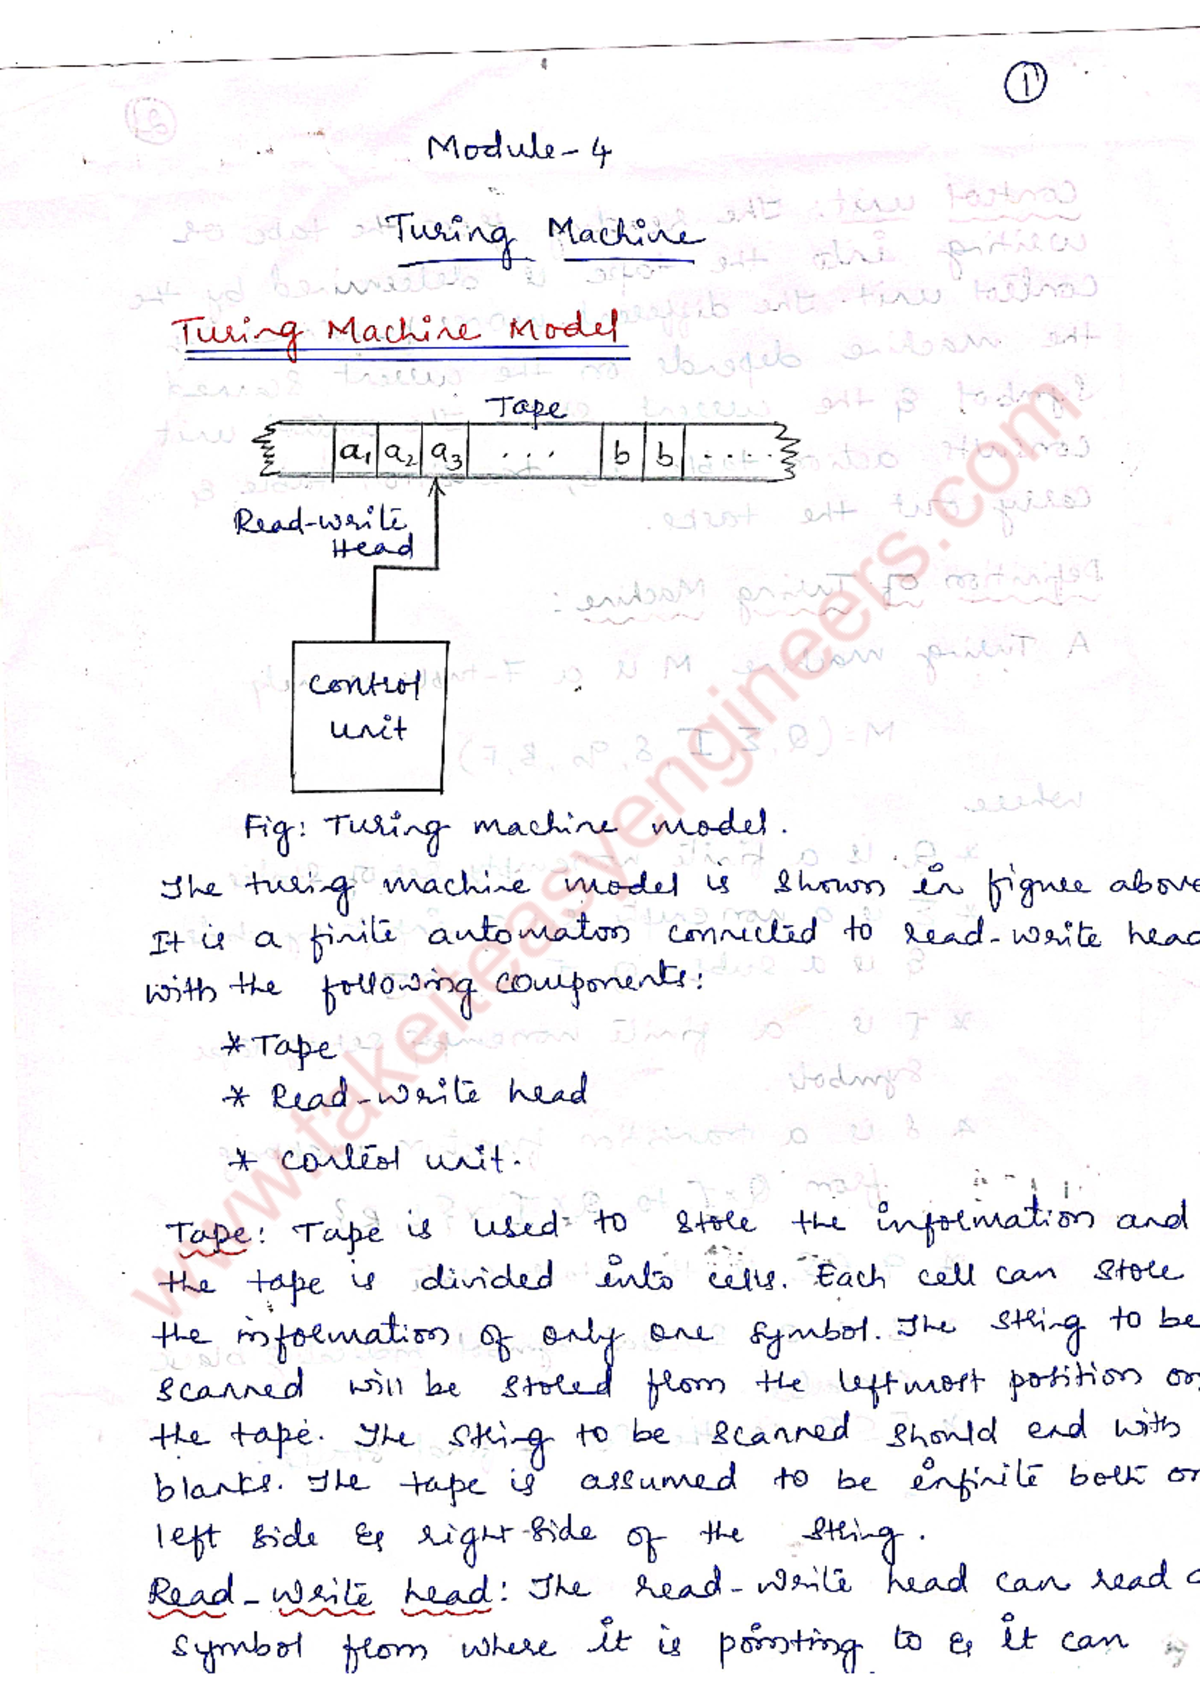 1
Module-4
Turing Machine
Turing Machine Model
Tape
a1 a2 a3 ... b b ....
Read-write
Head
Control
unit
Fig: Turing machine model.
The turing machine model is shown in figure above
It is a finite automaton connected to read-write head
with the following components:
* Tape
* Read-write head
* Control unit.
Tape: Tape is used to store the information and
the tape is divided into cells. Each cell can store
the information of only one symbol. The string to be
scanned will be stored from the leftmost position on
the tape. The string to be scanned should end with
blanks. The tape is assumed to be infinite both on
left side & right side of the string.
Read-write head: The read-write head can read a
symbol from where it is pointing to & it can
www.takeiteasyengineers.com